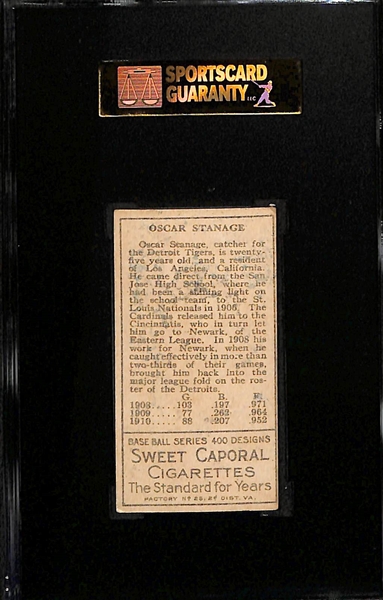 SPORTSCARD
GUARANTY LLC
OSCAR STANAGE
Oscar Stanage, catcher for
the Detroit Tigers, is twenty-
five years old, and a resident
of Los Angeles, California.
He came direct from the San
Jose High School, where he
had been a shining light on
the school team, to the St.
Louis Nationals in 1906. The
Cardinals released him to the
Cincinnatis, who in turn let
him go to Newark, of the
Eastern League. In 1908 his
work for Newark, when he
caught effectively in more than
two-thirds of their games,
brought him back into the
major league fold on the ros-
ter of the Detroits.
G. B. F.
1908..... 103 .197 .971
1909..... 77 .262 .964
1910..... 88 .207 .952
BASE BALL SERIES 400 DESIGNS
SWEET CAPORAL
CIGARETTES
The Standard for Years
FACTORY Nº 25, 2d DIST. VA.